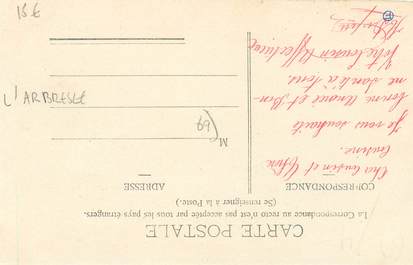 CARTE POSTALE
La Correspondance au recto n'est pas acceptée par tous les pays étrangers.
(Se renseigner à la Poste.)
CORRESPONDANCE
ADRESSE
Cher Cousin et Chère
Cousine.
Je vous souhaite
bonne Année et Bon-
ne Santé à tous.
Votre Cousin Affectueux
M
(69)
L'ARBRESLE
15€